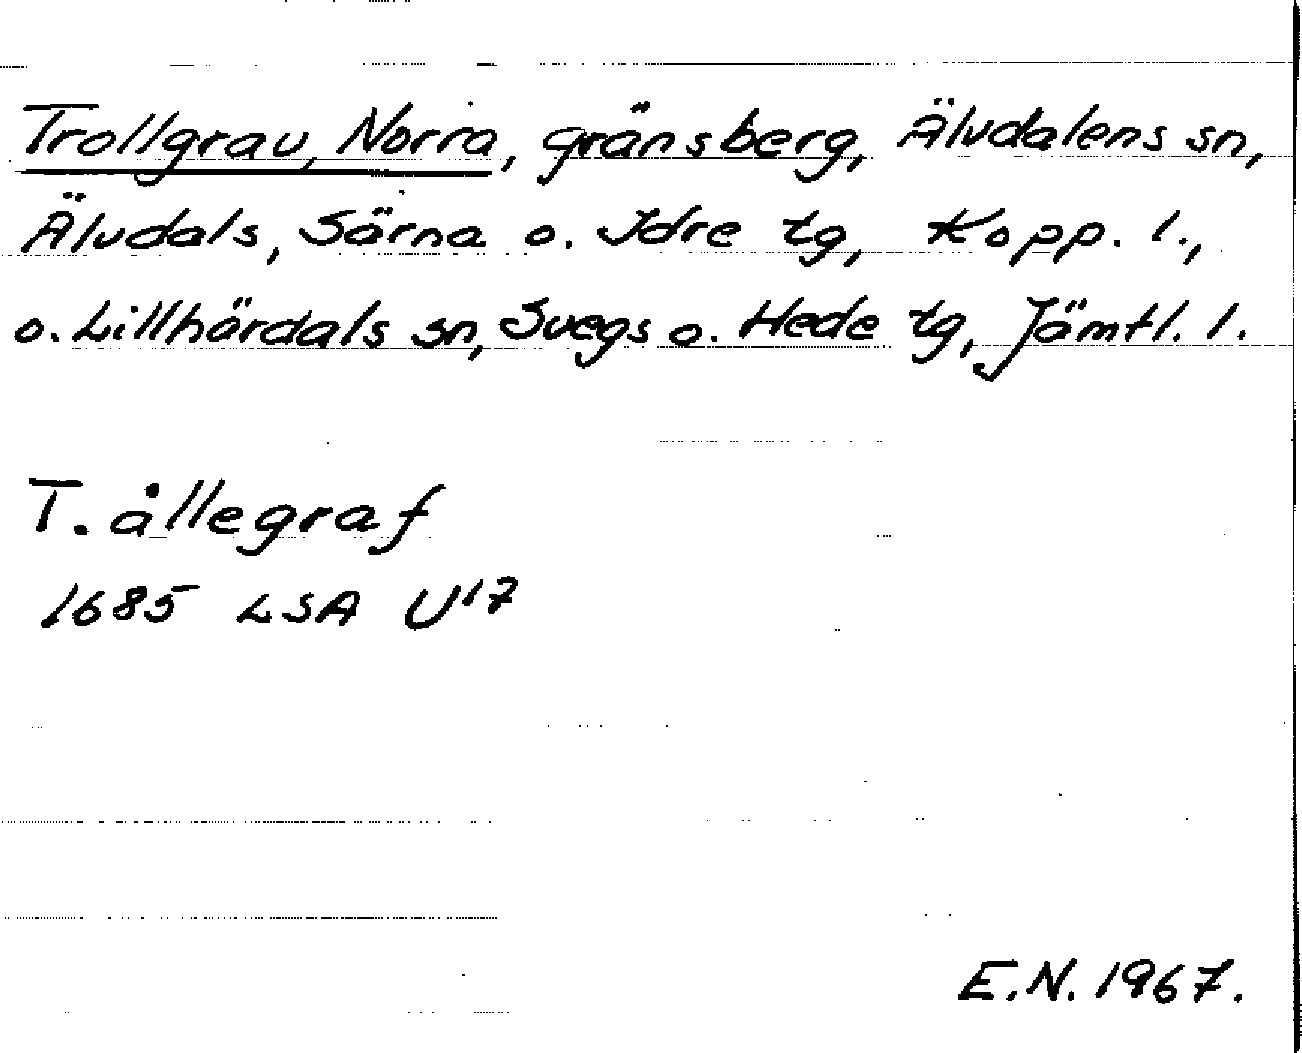 Trollgrav, Norra, gränsberg, Älvdalens sn,
Älvdals, Särna o. Idre tg, Kopp. l.,
o. Lillhärdals sn, Svegs o. Hede tg, Jämtl. l.
T. ållegraf
1685 LSA U¹⁷
E.N. 1967.